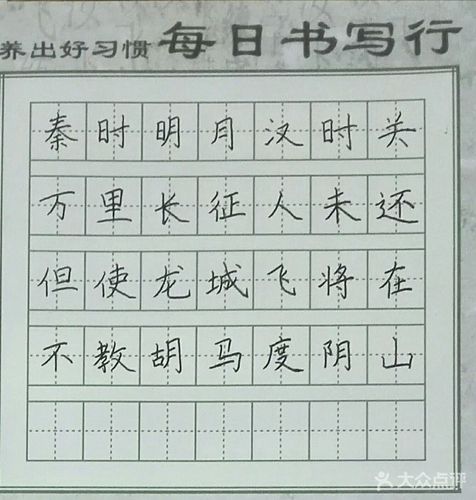 养出好习惯 每日书写行
秦时明月汉时关
万里长征人未还
但使龙城飞将在
不教胡马度阴山
大众点评